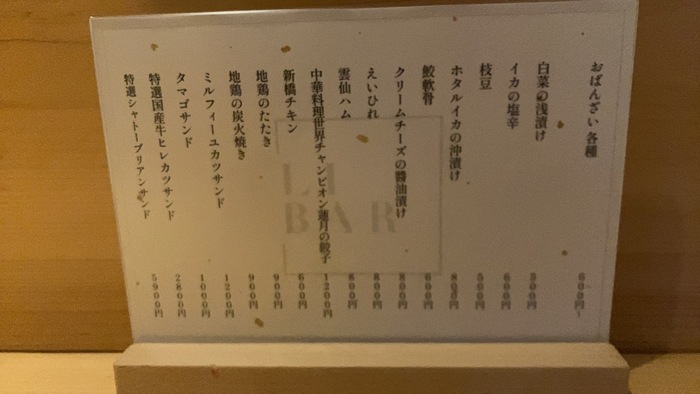 おばんざい各種 600円~
白菜の浅漬け 500円
イカの塩辛 600円
枝豆 500円
ホタルイカの沖漬け 800円
鮫軟骨 600円
クリームチーズの醬油漬け 800円
えいひれ 800円
雲仙ハム 800円
中華料理世界チャンピオン蓮月の餃子 1200円
新橋チキン 600円
地鶏のたたき 900円
地鶏の炭火焼き 900円
ミルフィーユカツサンド 1200円
タマゴサンド 1000円
特選国産牛ヒレカツサンド 2800円
特選シャトーブリアンサンド 5900円
BAR